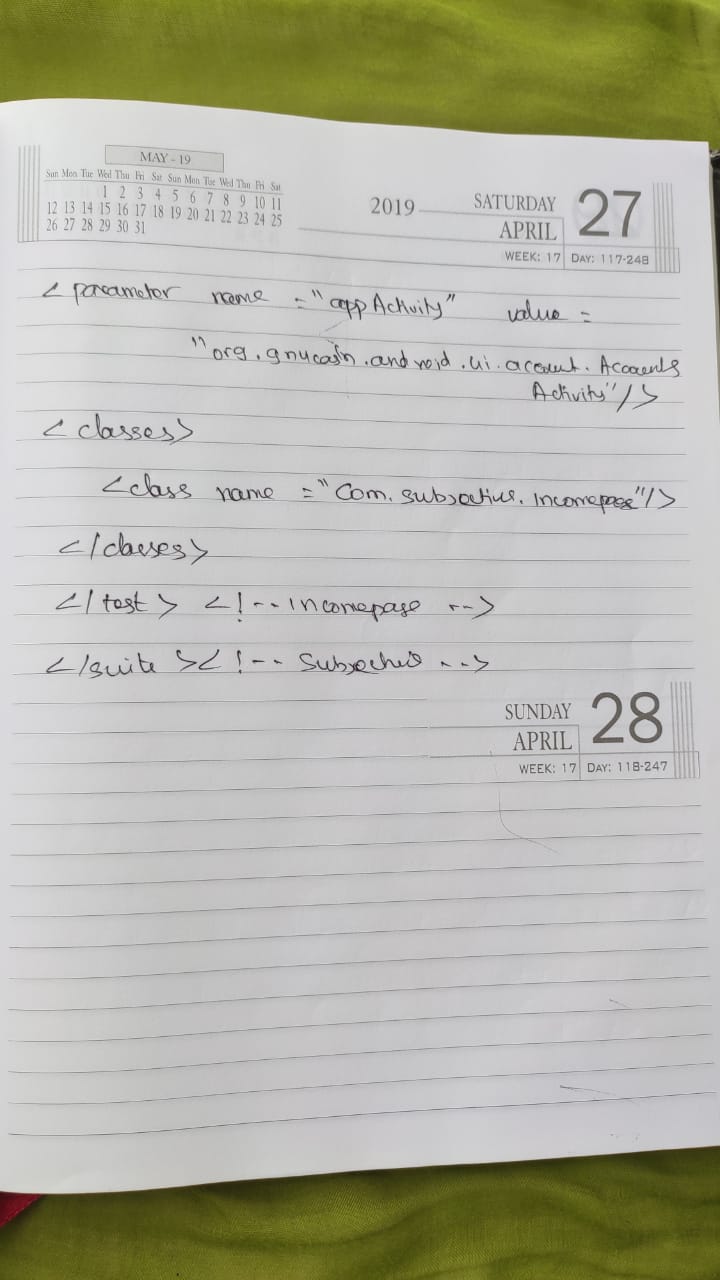 MAY - 19
Sun Mon Tue Wed Thu Fri Sat Sun Mon Tue Wed Thu Fri Sat
1 2 3 4 5 6 7 8 9 10 11
12 13 14 15 16 17 18 19 20 21 22 23 24 25
26 27 28 29 30 31
2019 SATURDAY 27
APRIL
WEEK: 17 DAY: 117-248
< parameter name = "appActivity" value =
"org.gnucash.android.ui.account.Accounts
Activity"/>
< classes>
<class name = "Com. . Incomepage"/>
</classes>
</test> <!-- Incomepage -->
</suite ><!-- -->
SUNDAY 28
APRIL
WEEK: 17 DAY: 118-247